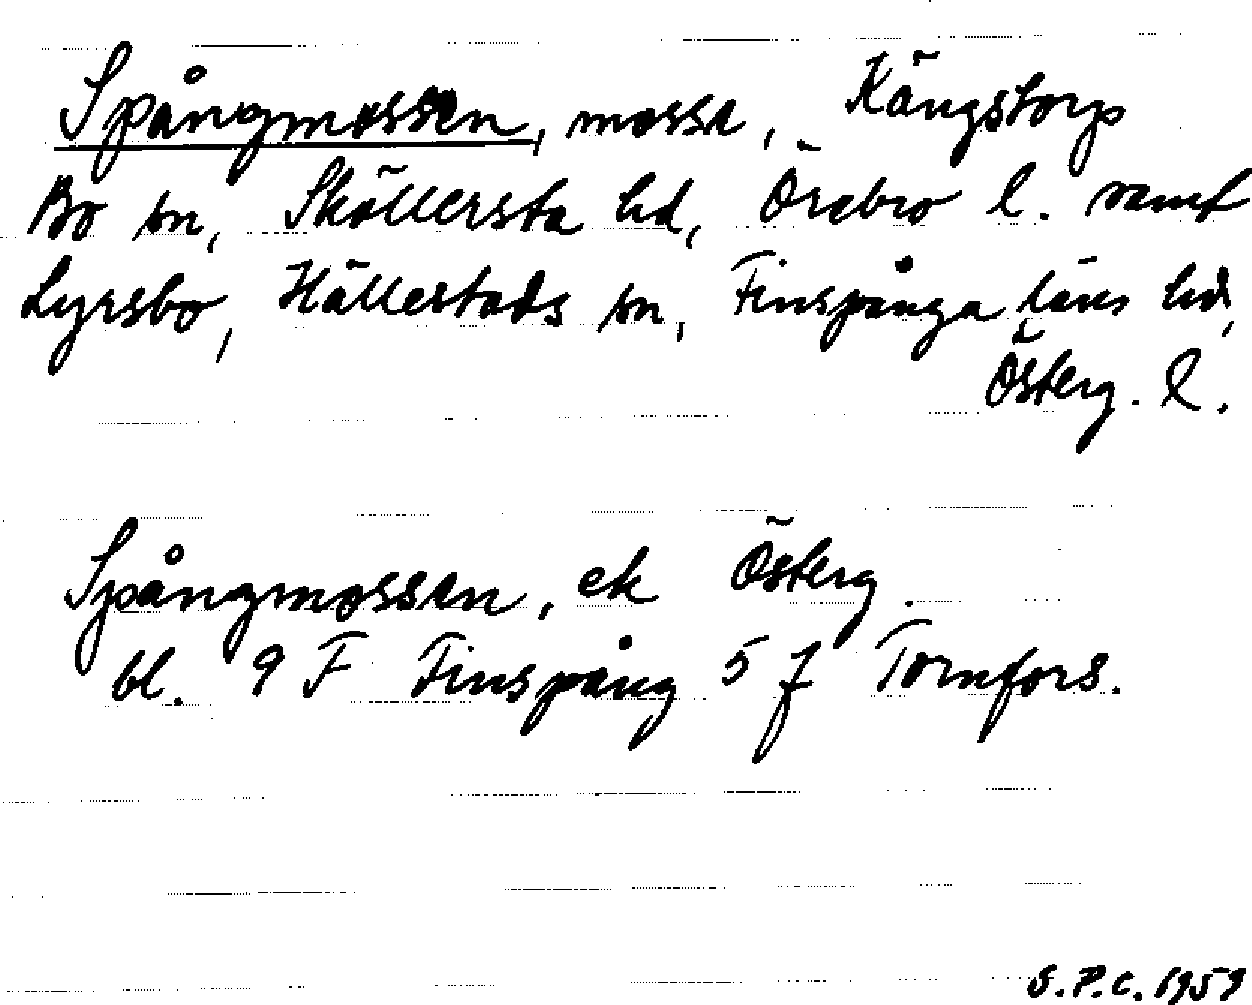 Spångmossen, mosse, Kängstorp
Bo sn, Sköllersta hd, Örebro l. samt
Lyrsbo, Hällestads sn, Finspånga läns hd,
Österg. l.
Spångmossen, ek Österg.
bl. 9 F Finspång 5 f Tornfors.
S.P.C. 1959